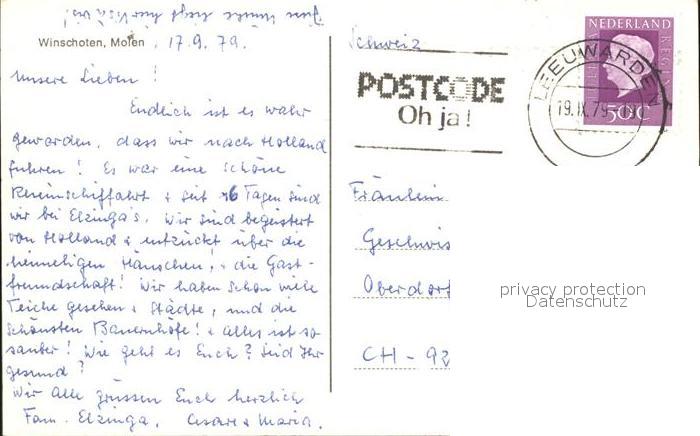 Winschoten, Molen, 17.9.79.
Unsere Lieben!
Endlich ist es wahr
geworden, dass wir nach Holland
fuhren! Es war eine schöne
Rheinschiffahrt + seit 6 Tagen sind
wir bei Elzinga's. Wir sind begeistert
von Holland + entzückt über die
heimeligen Häuschen! + die Gast-
freundschaft! Wir haben schon viele
Teiche gesehen + Städte, und die
schönsten Bauernhöfe! + alles ist so
sauber! Wie geht es Euch? Seid Ihr
gesund?
Wir alle grüssen Euch herzlich
Fam. Elzinga, Cesare + Maria.
Schweiz
POSTCODE
Oh ja!
LEEUWARDEN
19.IX.79
NEDERLAND
50C
Fräulein
Geschwis
Oberdorf
CH - 92
privacy protection
Datenschutz